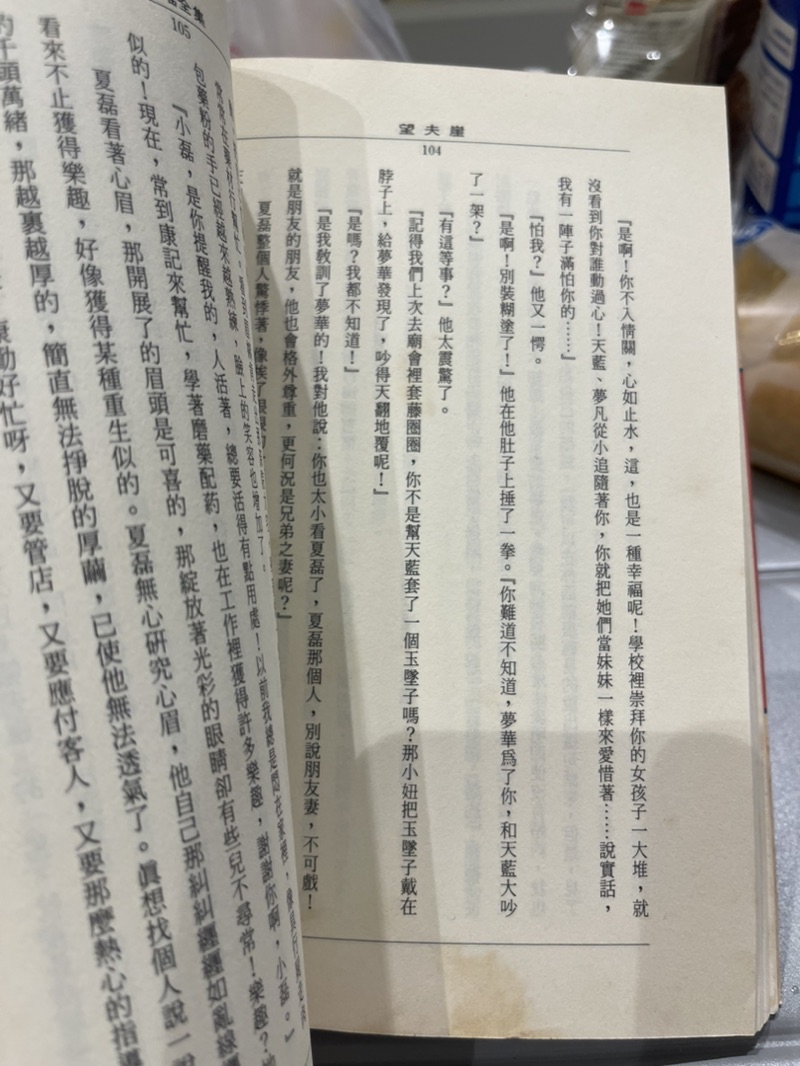 望夫崖
104
『是啊！你不入情關，心如止水，這，也是一種幸福呢！學校裡崇拜你的女孩子一大堆，就
沒看到你對誰動過心！天藍、夢凡從小追隨著你，你就把她們當妹妹一樣來愛惜著……說實話，
我有一陣子滿怕你的……』
『怕我？』他又一愕。
『是啊！別裝糊塗了！』他在他肚子上捶了一拳。『你難道不知道，夢華爲了你，和天藍大吵
了一架？』
『有這等事？』他太震驚了。
『記得我們上次去廟會裡套藤圈圈，你不是幫天藍套了一個玉墜子嗎？那小妞把玉墜子戴在
脖子上，給夢華發現了，吵得天翻地覆呢！』
『是嗎？我都不知道！』
『是我教訓了夢華的！我對他說：你也太小看夏磊了，夏磊那個人，別說朋友妻，不可戲！
就是朋友的朋友，他也會格外尊重，更何況是兄弟之妻呢？』
夏磊整個人驚悸著，像挨了
全集
105
包藥粉的手已經越來越熟練，臉上的笑容也增加了。
『小磊，是你提醒我的，人活著，總要活得有點用處！以前我總是悶在家裡，
小磊。』
似的！現在，常到康記來幫忙，學著磨藥配葯，也在工作裡獲得許多樂趣，謝謝你啊，
夏磊看著心眉，那開展了的眉頭是可喜的，那綻放著光彩的眼睛卻有些兒不尋常！樂趣？
看來不止獲得樂趣，好像獲得某種重生似的。夏磊無心研究心眉，他自己那糾糾纏纏如亂線
的千頭萬緒，那越裹越厚的，簡直無法掙脫的厚繭，已使他無法透氣了。眞想找個人說一說
好忙呀，又要管店，又要應付客人，又要那麼熱心的指